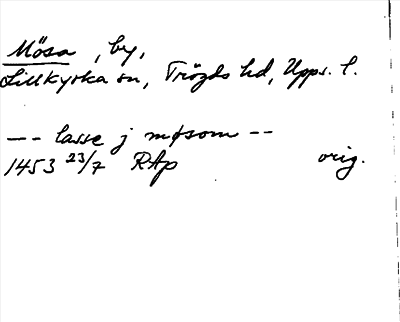 Mösa, by,
Lillkyrka sn, Trögds hd, Upps. l.
-- lasse j møsom --
1453 23/7 RAp orig.